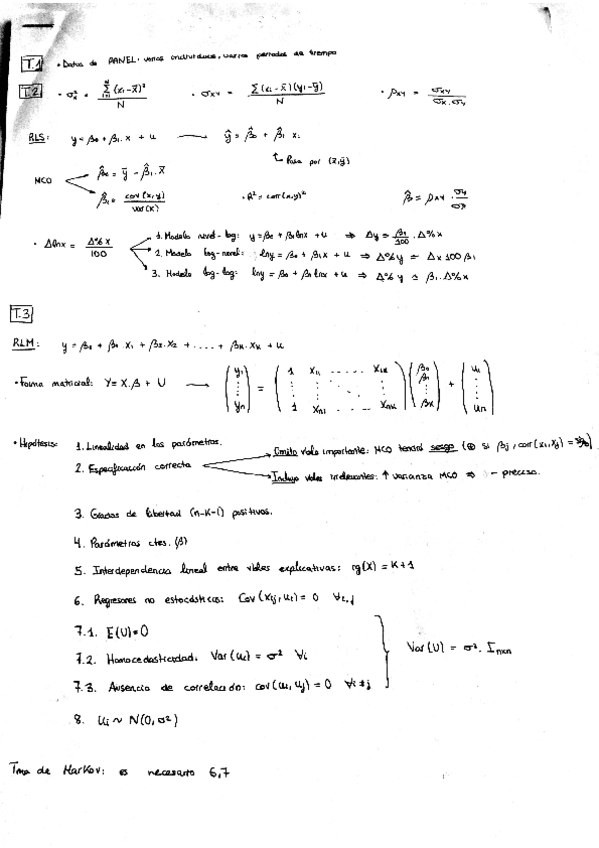 T.1 • Datos de PANEL: varios individuos, varios periodos de tiempo
T.2 • σ²ₓ = Σᵢ₌₁ᴺ (xᵢ-x̄)² / N • σxy = Σ (xᵢ-x̄)(yᵢ-ȳ) / N • ρxy = σxy / σx·σy
RLS: y = β₀ + β₁·x + u → ŷ = β̂₀ + β̂₁ xᵢ
↳ Pasa por (x̄,ȳ)
MCO β̂₀ = ȳ - β̂₁·x̄
β̂₁ = cov(x,y) / var(x) • R² = corr(x,y)² β̂ = ρxy · σy / σx
• Δlnx = Δ%x / 100
1. Modelo nivel-log: y = β₀ + β₁lnx + u ⇒ Δy = β₁/100 · Δ%x
2. Modelo log-nivel: lny = β₀ + β₁x + u ⇒ Δ%y = Δx 100 β₁
3. Modelo log-log: lny = β₀ + β₁lnx + u ⇒ Δ%y = β₁·Δ%x
T.3
RLM: y = β₀ + β₁·x₁ + β₂·x₂ + ..... + βk·xk + u
• Forma matricial: Y = X·β + U → (y₁ ⋮ yn) = (1 x₁₁ ...... x₁k ⋮ 1 xn₁ ...... xnk) (β₀ β₁ ⋮ βk) + (u₁ ⋮ un)
• Hipótesis: 1. Linealidad en los parámetros.
2. Especificación correcta → Omito vble importante: MCO tendrá sesgo (⊕ si βj, corr(xi,xj) =
→ Incluyo vbles irrelevantes: ↑ varianza MCO ⇒ - preciso.
3. Grados de libertad (n-K-1) positivos.
4. Parámetros ctes. (β)
5. Interdependencia lineal entre vbles explicativas: rg(X) = K+1
6. Regresores no estocásticos: Cov(xij, ui) = 0 ∀i,j
7.1. E(U) = 0
7.2. Homocedasticidad: Var(ui) = σ² ∀i
Var(U) = σ²· Inxn
7.3. Ausencia de correlación: cov(ui, uj) = 0 ∀i≠j
8. Ui ~ N(0,σ²)
Tma de Markov: es necesario 6,7